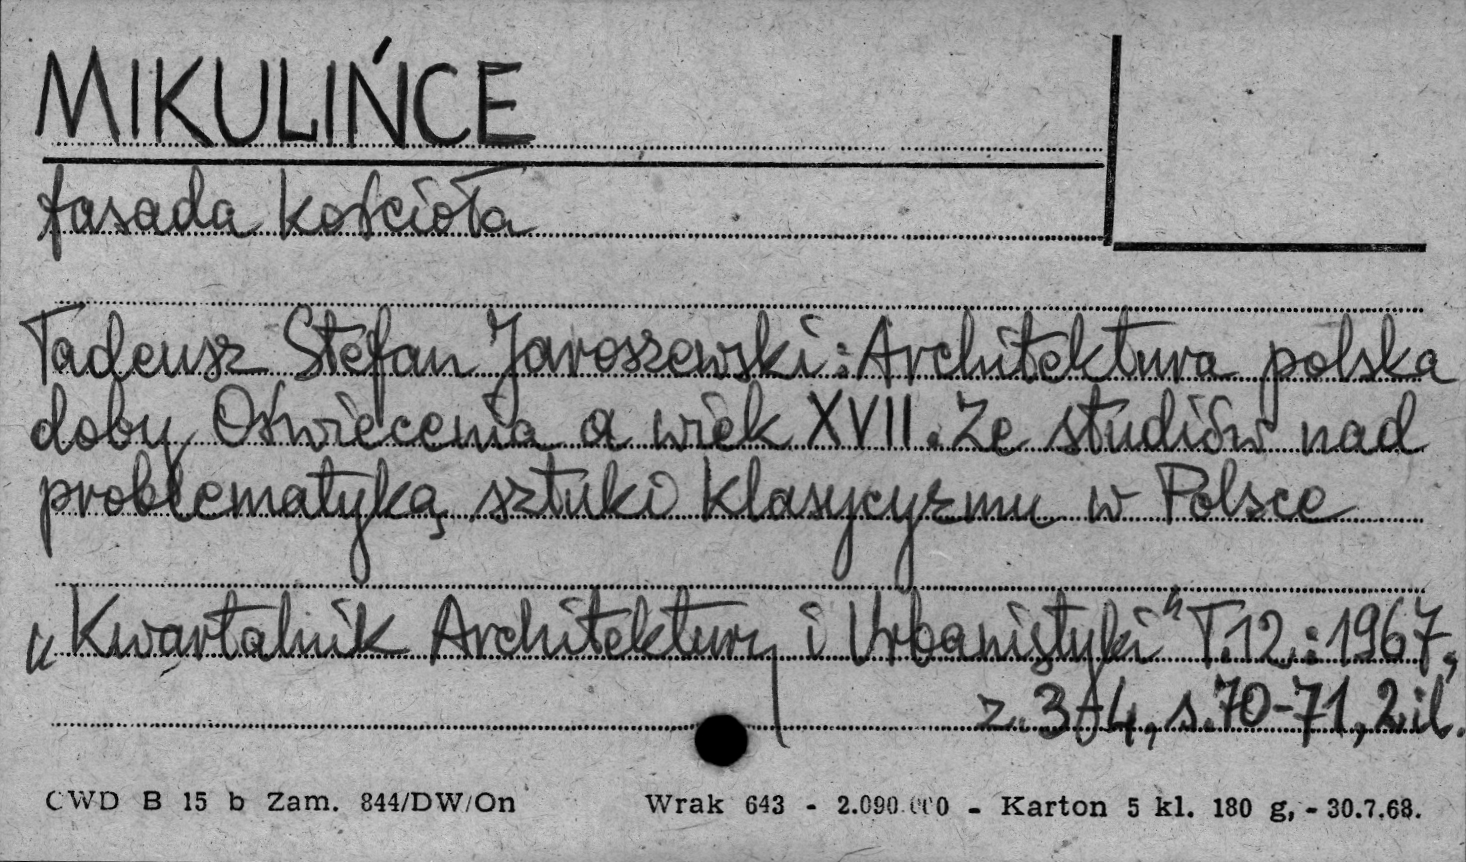 MIKULIŃCE
fasada kościoła
Tadeusz Stefan Jaroszewski: Architektura polska
doby Oświecenia a wiek XVII. Ze studiów nad
problematyką sztuki klasycyzmu w Polsce
„Kwartalnik Architektury i Urbanistyki" T.12.:1967,
z. 3-4, s.70-71, 2 il.
CWD B 15 b Zam. 844/DW/On Wrak 643 - 2.090.000 - Karton 5 kl. 180 g, - 30.7.68.